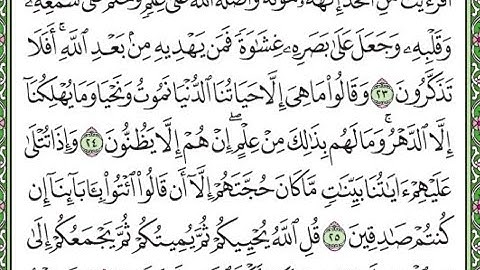 أَفَرَءَيْتَ مَنِ ٱتَّخَذَ إِلَٰهَهُۥ هَوَىٰهُ وَأَضَلَّهُ ٱللَّهُ عَلَىٰ عِلْمٍ وَخَتَمَ عَلَىٰ سَمْعِهِۦ
وَقَلْبِهِۦ وَجَعَلَ عَلَىٰ بَصَرِهِۦ غِشَٰوَةً فَمَن يَهْدِيهِ مِنۢ بَعْدِ ٱللَّهِۚ أَفَلَا
تَذَكَّرُونَ ٢٣ وَقَالُوا۟ مَا هِىَ إِلَّا حَيَاتُنَا ٱلدُّنْيَا نَمُوتُ وَنَحْيَا وَمَا يُهْلِكُنَآ
إِلَّا ٱلدَّهْرُۚ وَمَا لَهُم بِذَٰلِكَ مِنْ عِلْمٍۖ إِنْ هُمْ إِلَّا يَظُنُّونَ ٢٤ وَإِذَا تُتْلَىٰ
عَلَيْهِمْ ءَايَٰتُنَا بَيِّنَٰتٍ مَّا كَانَ حُجَّتَهُمْ إِلَّآ أَن قَالُوا۟ ٱئْتُوا۟ بِـَٔابَآئِنَآ إِن
كُنتُمْ صَٰدِقِينَ ٢٥ قُلِ ٱللَّهُ يُحْيِيكُمْ ثُمَّ يُمِيتُكُمْ ثُمَّ يَجْمَعُكُمْ إِلَىٰ